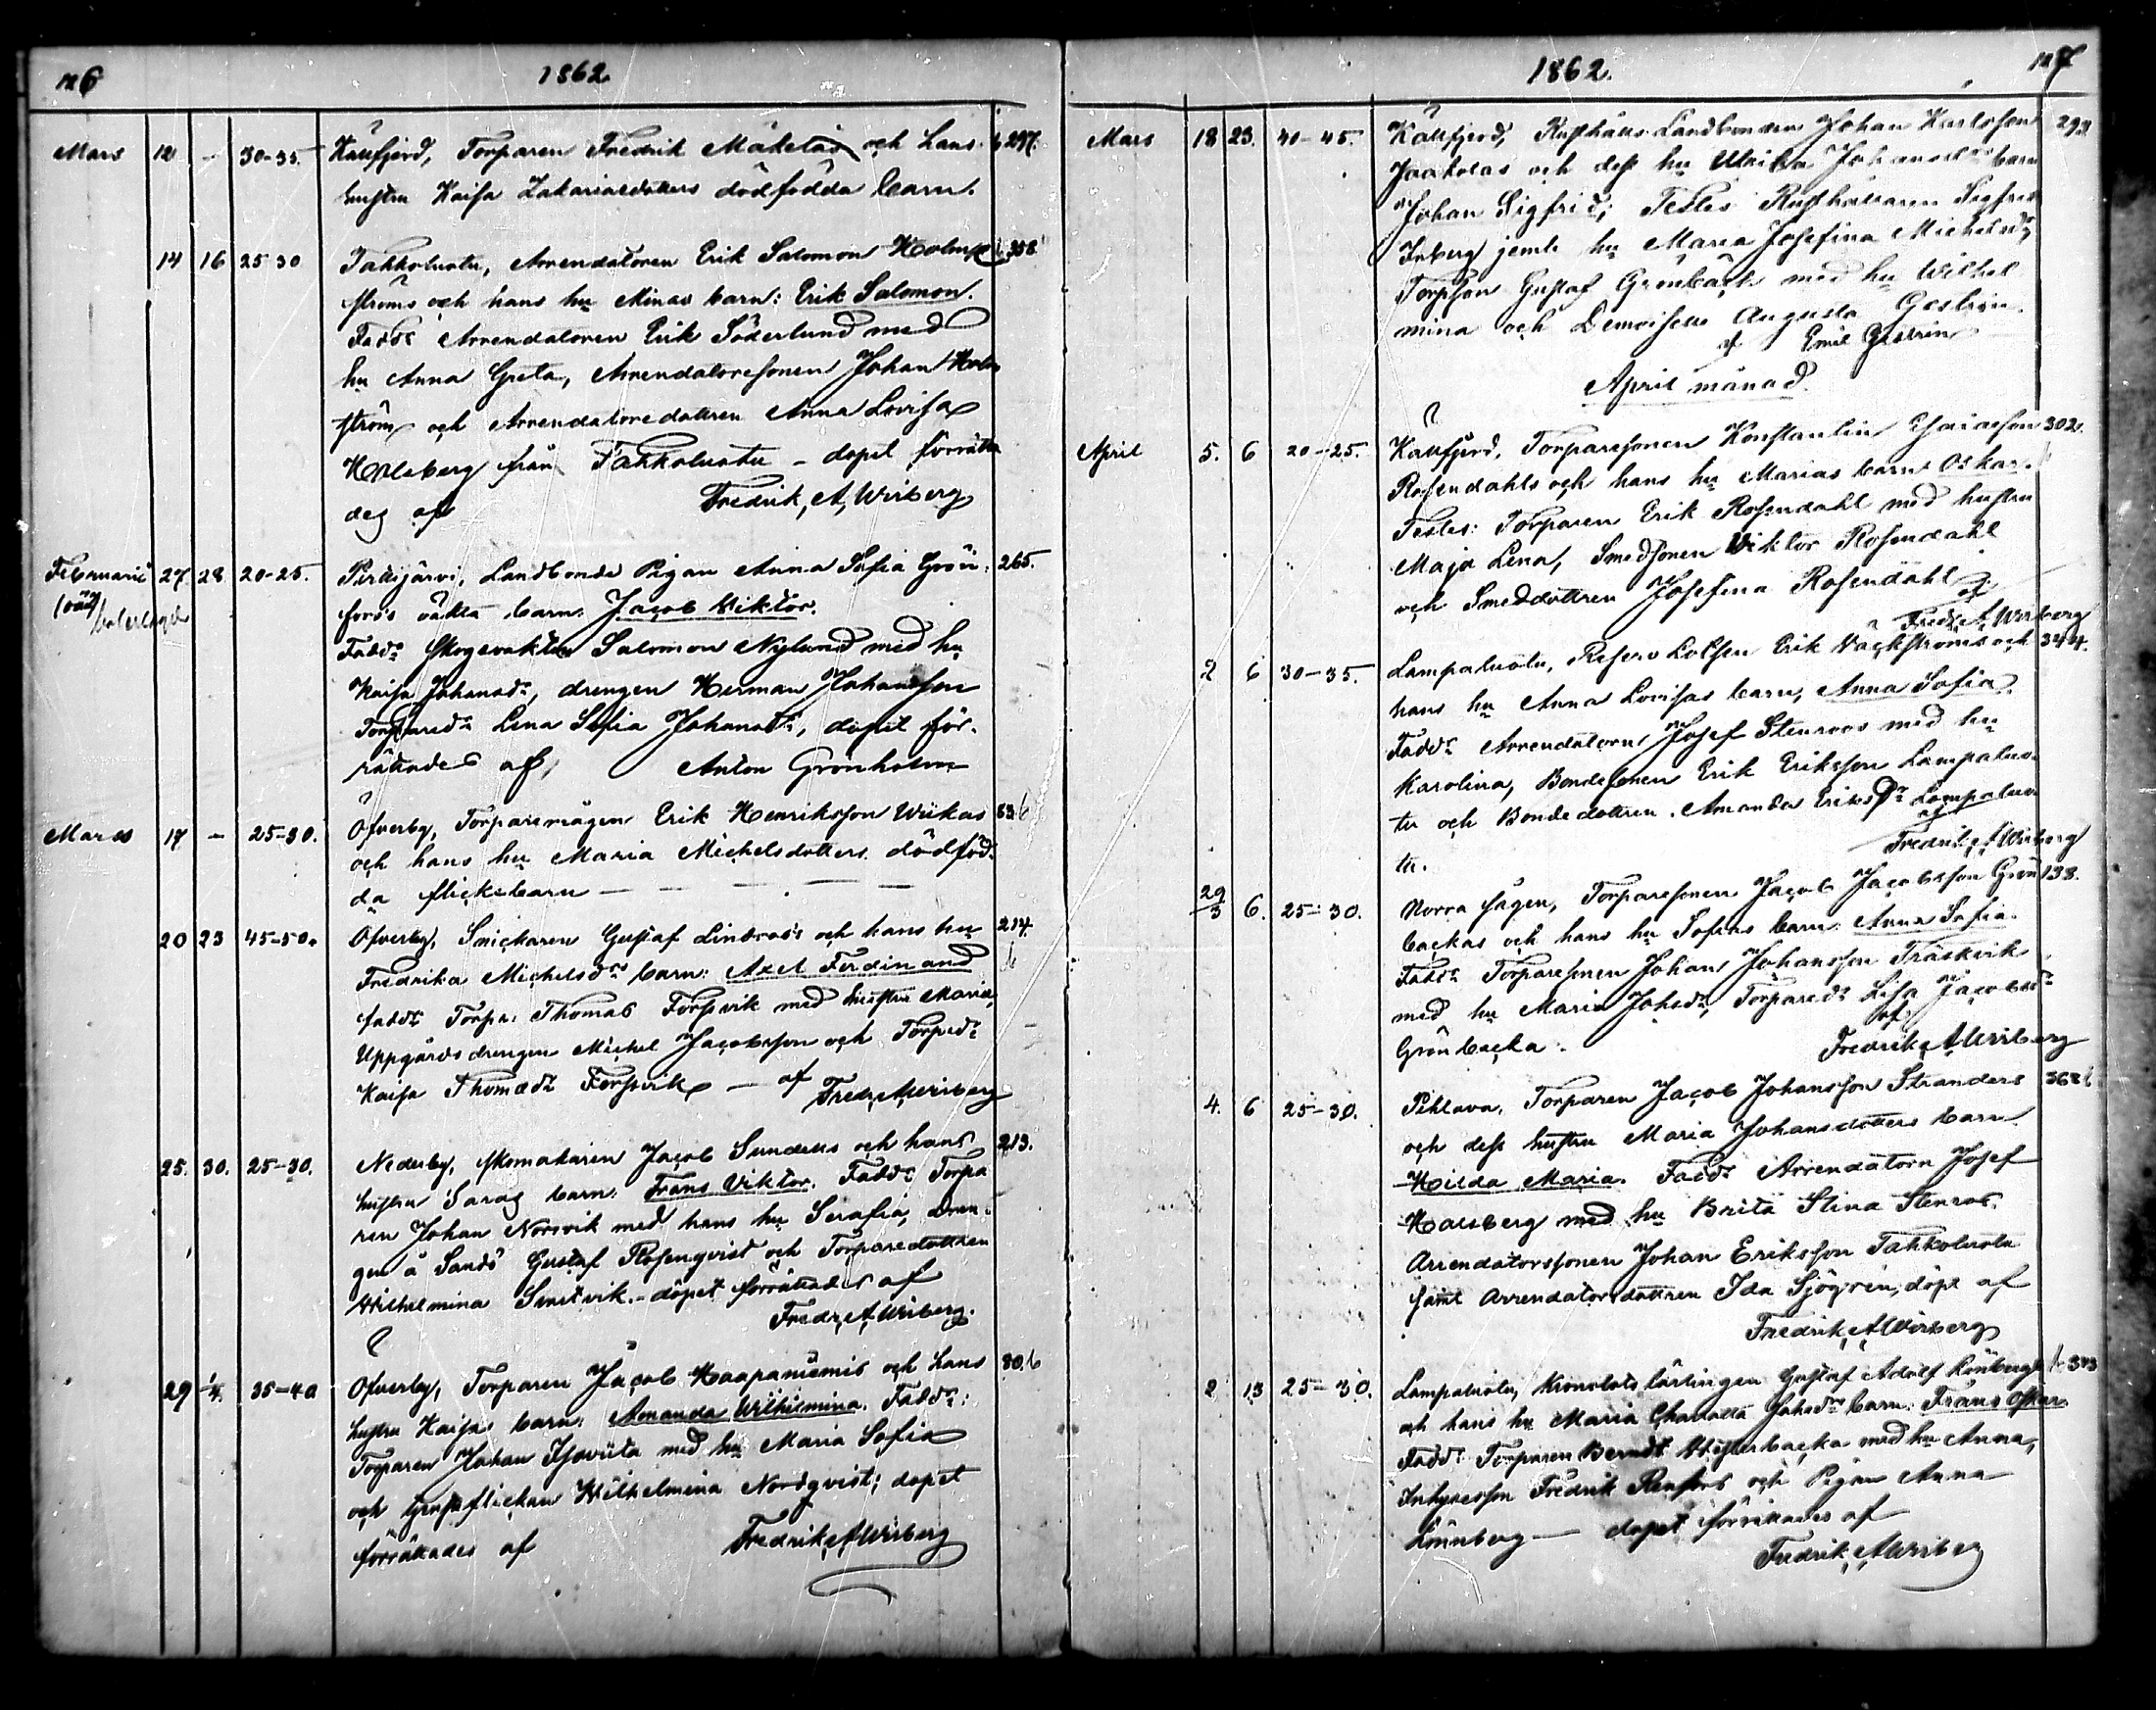 126
1862.
Mars 12 – 30-35. Kallfjerd, Torparen Fredrik Mäkeläs och hans 297.
hustru Kaisa Zakariasdotters dödfödda barn.
14 16 25-30 Tahkoluoto, Arrendatoren Erik Salomon Holm- 358
ströms och hans hu Minas barn: Erik Salomon.
Fadd: Arrendatoren Erik Söderlund med
hu Anna Greta, Arrendatoresonen Johan Holm
ström och Arrendatoredottren Anna Lovisa
Holsberg från Tahkoluoto – dopet förrätta
des af Fredrik, A, Wirberg
Februarii 27. 28. 20-25. Pirkijärvi, Landbonde Pigan Anna Sofia Grön- 265.
fors's oäkta barn. Jacob Viktor.
Fadd: Skogsvakten Salomon Nylund med hu
Kaisa Johansdr, drengen Herman Johansson
Torpared: Lena Sofia Johansdr, dopet för-
rättades af, Anton Grönholm
Mars 17 – 25-30. Öfverby, Torparemågen Erik Henriksson Wiikas 83
och hans hu Maria Michelsdotters dödföd-
da flickebarn – – – –
20 23 45-50. Öfverby, Snickaren Gustaf Lindroos's och hans hu 214.
Fredrika Michelsdrs barn: Axel Ferdinand
fadd: Torp: Thomas Forsvik med hustru Maria,
Uppgårds drengen Michel Jacobsson och Torpdr
Kaisa Thomædr Forsvik – af Fredr, A, Wirberg
25. 30. 25-30. Nederby, Skomakaren Jacob Sundells och hans 213.
hustru Saras barn: Frans Viktor. Fadd: Torpa
ren Johan Norrvik med hans hu Serafia, Dren-
gen å Sandö Gustaf Rosenqvist och Torparedottren
Wilhelmina – dopet förrättades af
Fredr, A, Wirberg.
29 1/4. 35-40 Öfverby, Torparen Jacob Haapaniemis och hans 80.b
hustru Kaisas barn: Amanda Wilhelmina. Fadd:
Torparen Johan med hu Maria Sofia
och Wilhelmina Nordqvist; dopet
förrättades af Fredrik, A, Wirberg
1862.
127
Mars 18 23. 40-45. Kallfjerd, Rusthålls Landbonden Johan Karlsson 292.
Jaakolas och dess hu Ulrika Johansdrs barn
Johan Sigfrid; Testes Rusthållaren Sigfrid
Inberg jemte hu Maria Josefina Michelsdr,
Torpson Gustaf Grönbäck med hu Wilhel
mina och Demoiselle Augusta Gestrin.
af Emil Gestrin
April månad.
April 5. 6 20-25. Kallfjerd, Torparesonen Konstantin Esaiasson 302.
Rosendahls och hans hu Marias barn Oskar.
Testes: Torparen Erik Rosendahl med hustru
Maja Lena, Smedsonen Viktor Rosendahl
och Smeddottren Josefina Rosendahl
af Fredr, A, Wirberg
2 6 30-35. Lampaluoto, Reserv Lotsen Erik Väckströms och 344.
hans hu Anna Lovisas barn, Anna Sofia.
Fadd: Arrendatorn Josef Stenroos med hu
Karolina, Bondesonen Erik Eriksson Lampaluo-
to och Bondedottren Amanda Eriksdr Lampaluo
to. af Fredrik, A, Wirberg
29/3 6. 25-30. Norra sågen, Torparesonen Jacob Jacobsson Grön 138.
backas och hans hu Sofias barn: Anna Sofia.
Fadd: Torparesonen Johan Johansson Träskvik
med hu Maria Johsdr, Torparedr Lisa Jacobsdr
Grönbacka. af Fredrik, A, Wirberg
4. 6 25-30. Pihlava, Torparen Jacob Johansson Stranders 368
och dess hustru Maria Johansdotters barn
Hilda Maria. Fadd: Arrendatorn Josef
Holsberg med hu Brita Stina Stenroos.
Arrendatorssonen Johan Eriksson Tahkoluoto
samt Arrendatorsdottren Ida Sjögren, döpt af
Fredrik, A, Wirberg
2 13 25-30. Lampaluoto, Kronolotslärlingen Gustaf Adolf Lönbergs 343
och hans hu Maria Charlotta Johsdrs barn. Frans Oskar
Fadd: Torparen Berndt Westerbacka med hu Anna,
Inhysesson Fredrik Renfors och Pigan Anna
Lönnberg – dopet förrättades af
Fredrik, A, Wirberg